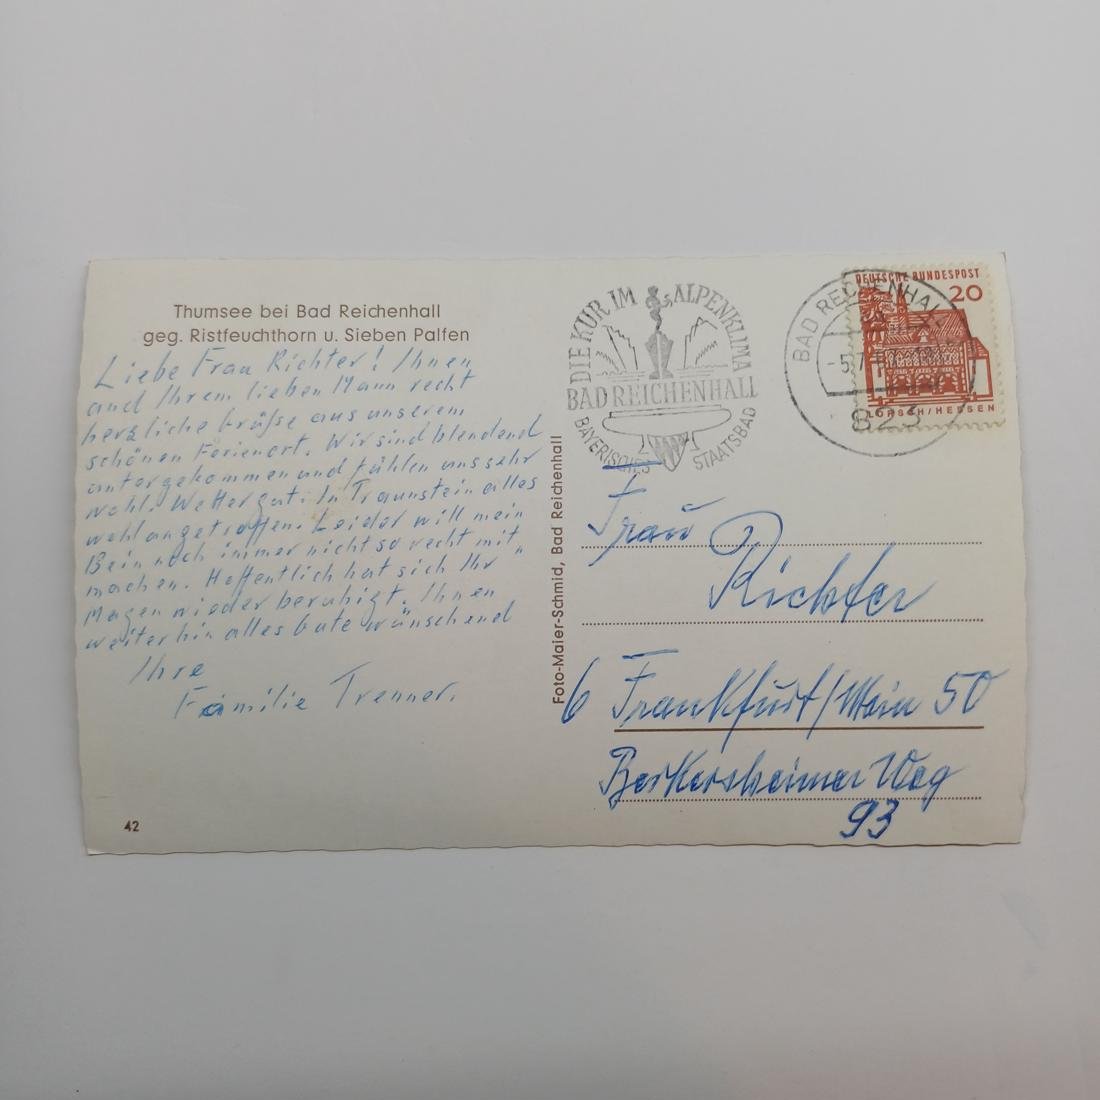 Thumsee bei Bad Reichenhall
geg. Ristfeuchthorn u. Sieben Palfen
Liebe Frau Richter! Ihnen
und Ihrem lieben Mann recht
herzliche Grüße aus unserem
schönen Ferienort. Wir sind blendend
untergekommen und fühlen uns sehr
wohl. Wetter gut. In Traunstein alles
wohl angetroffen. Leider will mein
Bein noch immer nicht so recht mit
machen. Hoffentlich hat sich Ihr
Magen wieder beruhigt. Ihnen
weiterhin alles Gute wünschend
Ihre
Familie Trenner.
42
Foto-Maier-Schmid, Bad Reichenhall
DIE KUR IM ALPENKLIMA
BAD REICHENHALL
BAYERISCHES STAATSBAD
BAD REICHENHALL
-5.7.
823
DEUTSCHE BUNDESPOST
20
LORSCH/HESSEN
Frau
Richter
6 Frankfurt/Main 50
Berkersheimer Weg
93